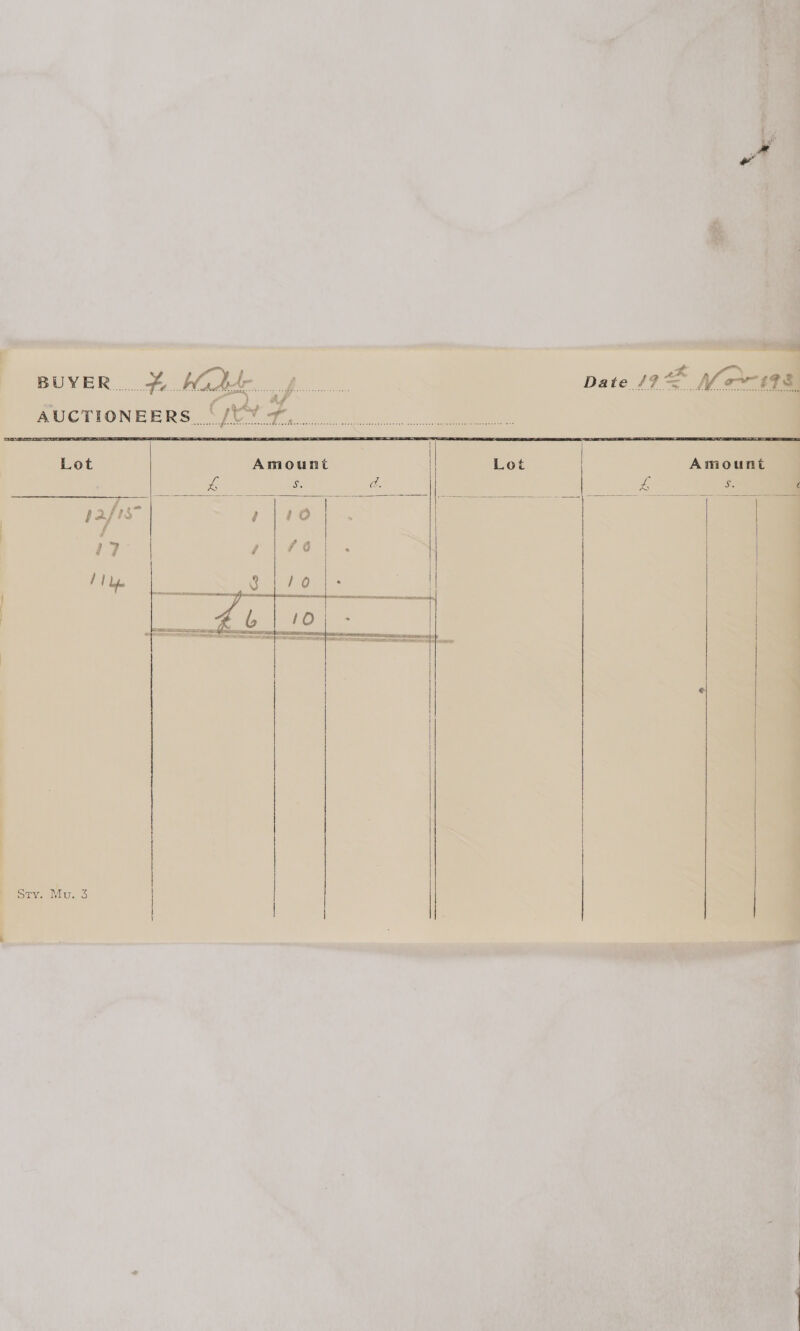 BUYER
Date 19th Nov 193
AUCTIONEERS
Lot Amount Lot Amount
£ s. d. £ s.
12/15 1 10 -
17 1 10 -
114 3 10 -
£6 10 -
Sty. Mu. 3